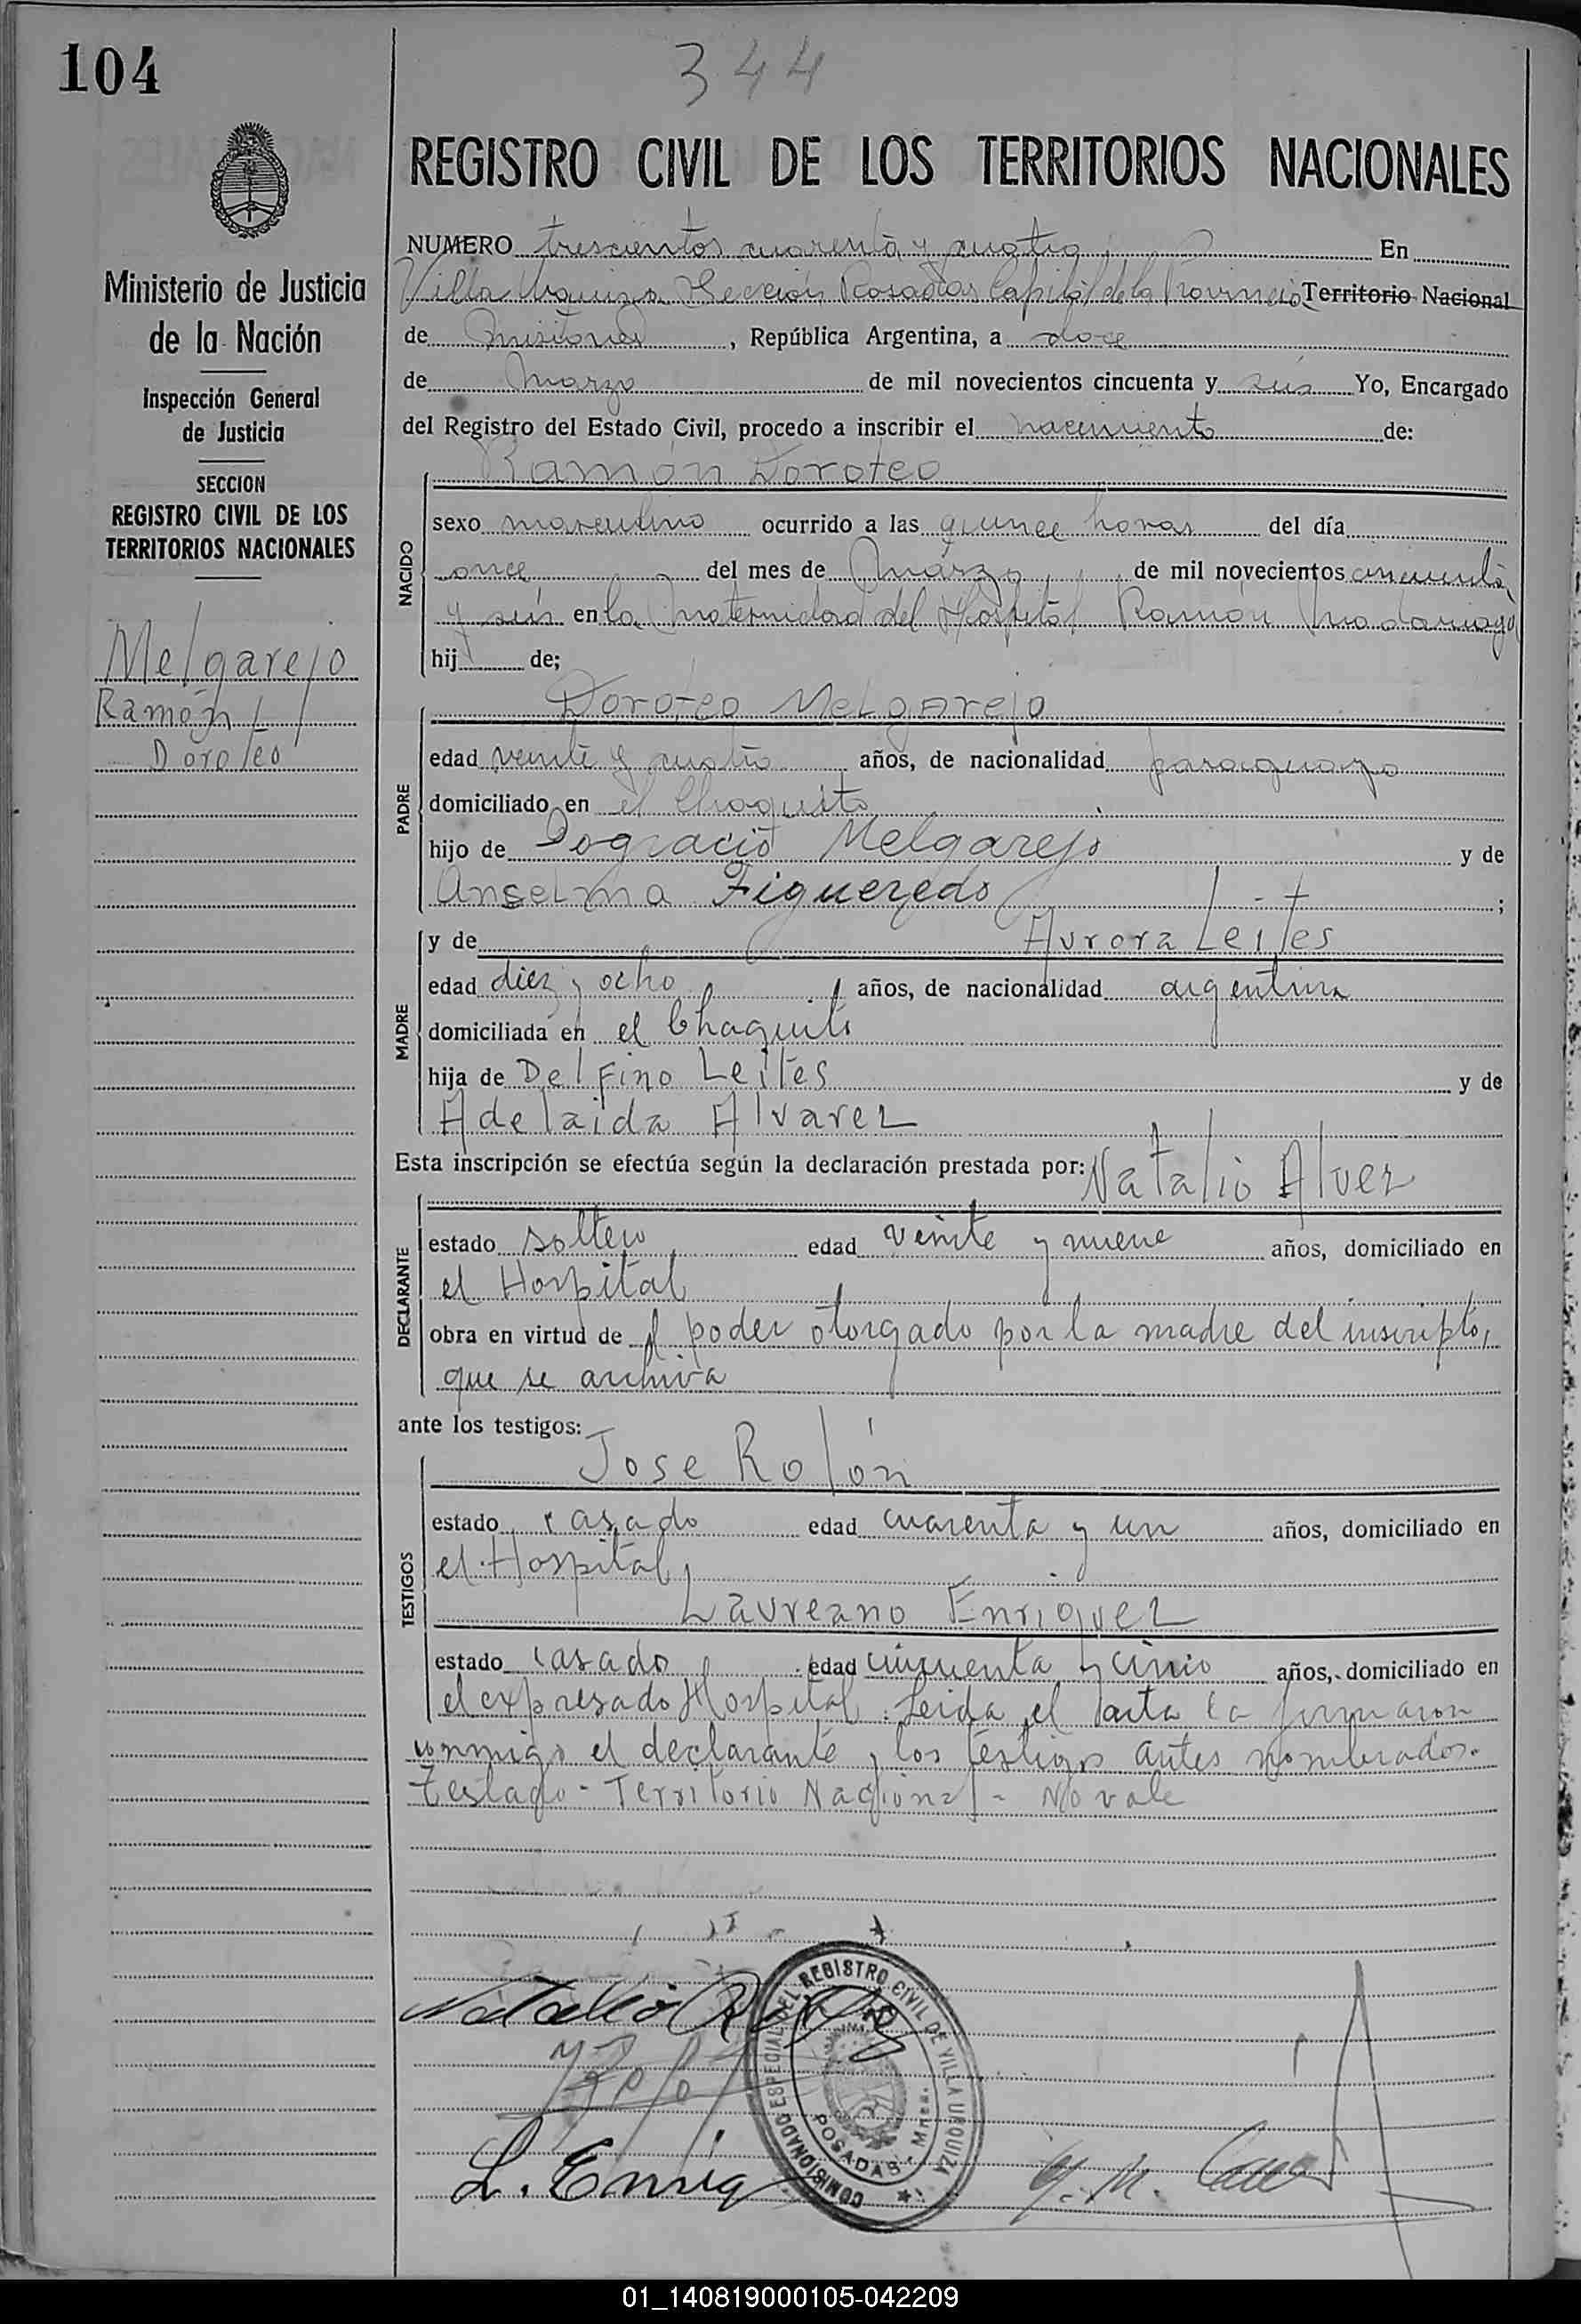 104
344
REGISTRO CIVIL DE LOS TERRITORIOS NACIONALES
Ministerio de Justicia
de la Nación
Inspección General
de Justicia
SECCION
REGISTRO CIVIL DE LOS
TERRITORIOS NACIONALES
Melgarejo
Ramón
Doroteo
NUMERO trescientos cuarenta y cuatro En
Villa Urquiza Sección Posadas Capital de la Provincia Territorio Nacional
de Misiones, República Argentina, a doce
de Marzo de mil novecientos cincuenta y seis Yo, Encargado
del Registro del Estado Civil, procedo a inscribir el nacimiento de:
Ramón Doroteo
NACIDO
sexo masculino ocurrido a las quince horas del día
once del mes de Marzo de mil novecientos cincuenta
y seis en la Maternidad del Hospital Ramón Madariaga
hij de;
Doroteo Melgarejo
PADRE
edad veinte y cuatro años, de nacionalidad paraguayo
domiciliado en el Chaquito
hijo de Dogracio Melgarejo y de
Anselma Figueredo ;
y de Aurora Leites
MADRE
edad diez y ocho años, de nacionalidad argentina
domiciliada en el Chaquito
hija de Delfino Leites y de
Adelaida Alvarez
Esta inscripción se efectúa según la declaración prestada por: Natalio Alvez
DECLARANTE
estado soltero edad veinte y nueve años, domiciliado en
el Hospital
obra en virtud de l poder otorgado por la madre del inscripto,
que se archiva
ante los testigos:
Jose Rolón
TESTIGOS
estado casado edad cuarenta y un años, domiciliado en
el Hospital
Laureano Enriquez
estado casado edad cincuenta y cinco años, domiciliado en
el expresado Hospital. Leida el acta la firmaron
conmigo el declarante y los testigos antes nombrados.
Testado - Territorio Nacional - No vale
Natalio
L. Enriq
COMISIONADO ESPECIAL DEL REGISTRO CIVIL DE VILLA URQUIZA
POSADAS, Mnes.
01_140819000105-042209